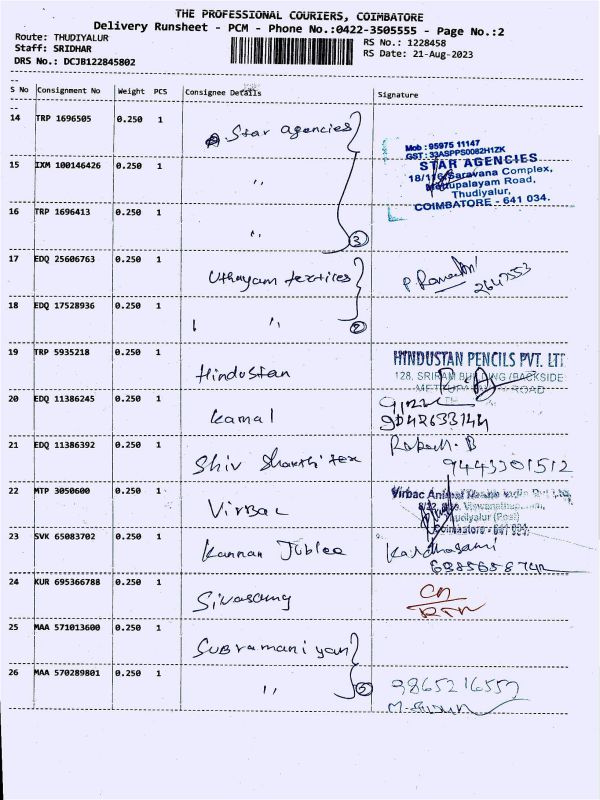 THE PROFESSIONAL COURIERS, COIMBATORE
Delivery Runsheet - PCM - Phone No.:0422-3505555 - Page No.:2
Route: THUDIYALUR
RS No.: 1228458
Staff: SRIDHAR
RS Date: 21-Aug-2023
DRS No.: DCJB122845802
S No Consignment No Weight PCS Consignee Details Signature
14 TRP 1696505 0.250 1 Star agencies
Mob : 95975 11147
GST : 33ASPPS0082H1ZK
STAR AGENCIES
18/116 Saravana Complex,
Mettupalayam Road,
Thudiyalur,
COIMBATORE - 641 034.
15 IXM 100146426 0.250 1 "
16 TRP 1696413 0.250 1 "
3
17 EDQ 25606763 0.250 1 Uthayam textiles
18 EDQ 17528936 0.250 1 "
2
19 TRP 5935218 0.250 1 Hindustan
HINDUSTAN PENCILS PVT. LTD
128, SRIRAM BUILDING (BACKSIDE
METTUPALAYAM ROAD
20 EDQ 11386245 0.250 1 Kamal
9042633144
21 EDQ 11386392 0.250 1 Shiv Shakthi tex
Rakesh. B
9443301512
22 MTP 3050600 0.250 1 Virbac
Virbac Animal Health India Pvt Ltd,
Thudiyalur (Post)
Coimbatore - 641 034.
23 SVK 65083702 0.250 1 Kannan Jublee
Kandhasami
24 KUR 695366788 0.250 1 Sivasamy
RTN
25 MAA 571013600 0.250 1 Subramaniyan
26 MAA 570289801 0.250 1 "
9865216552